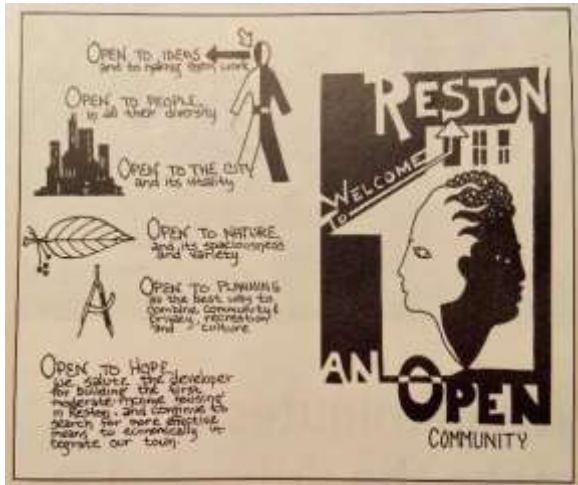 OPEN TO IDEAS
and to making them work
OPEN TO PEOPLE
in all their diversity
OPEN TO THE CITY
and its vitality
OPEN TO NATURE
and its spaciousness
and variety
OPEN TO PLANNING
as the best way to
combine community &
privacy, recreation
and culture
OPEN TO HOPE
we salute the developer
for building the first
moderate-income housing
in Reston, and continue to
search for more effective
means to economically in
tegrate our town.
WELCOME
TO
RESTON
AN OPEN
COMMUNITY